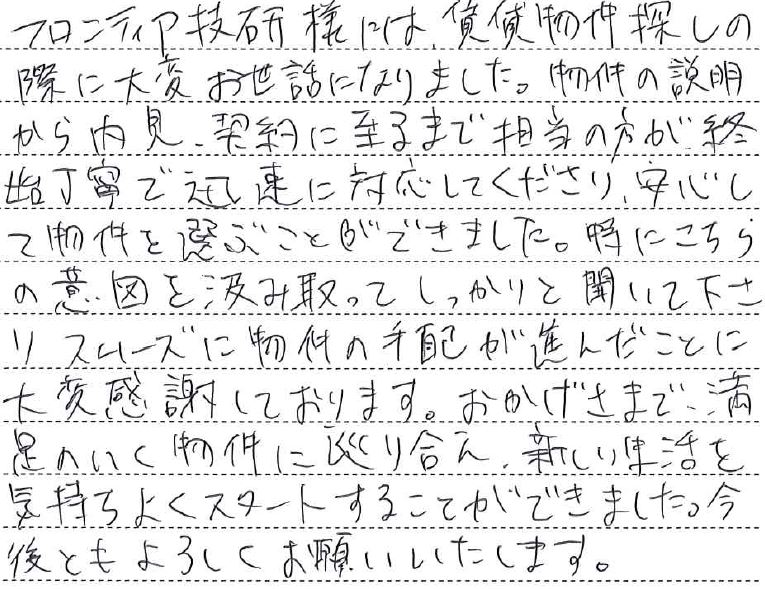 フロンティア技研様には、賃貸物件探しの
際に大変お世話になりました。物件の説明
から内見、契約に至るまで担当の方が、終
始丁寧で迅速に対応してくださり、安心し
て物件を選ぶことができました。特にこちら
の意図を汲み取ってしっかりと聞いて下さ
りスムーズに物件の手配が進んだことに
大変感謝しております。おかげさまで、満
足のいく物件に巡り合え、新しい生活を
気持ちよくスタートすることができました。今
後ともよろしくお願いいたします。